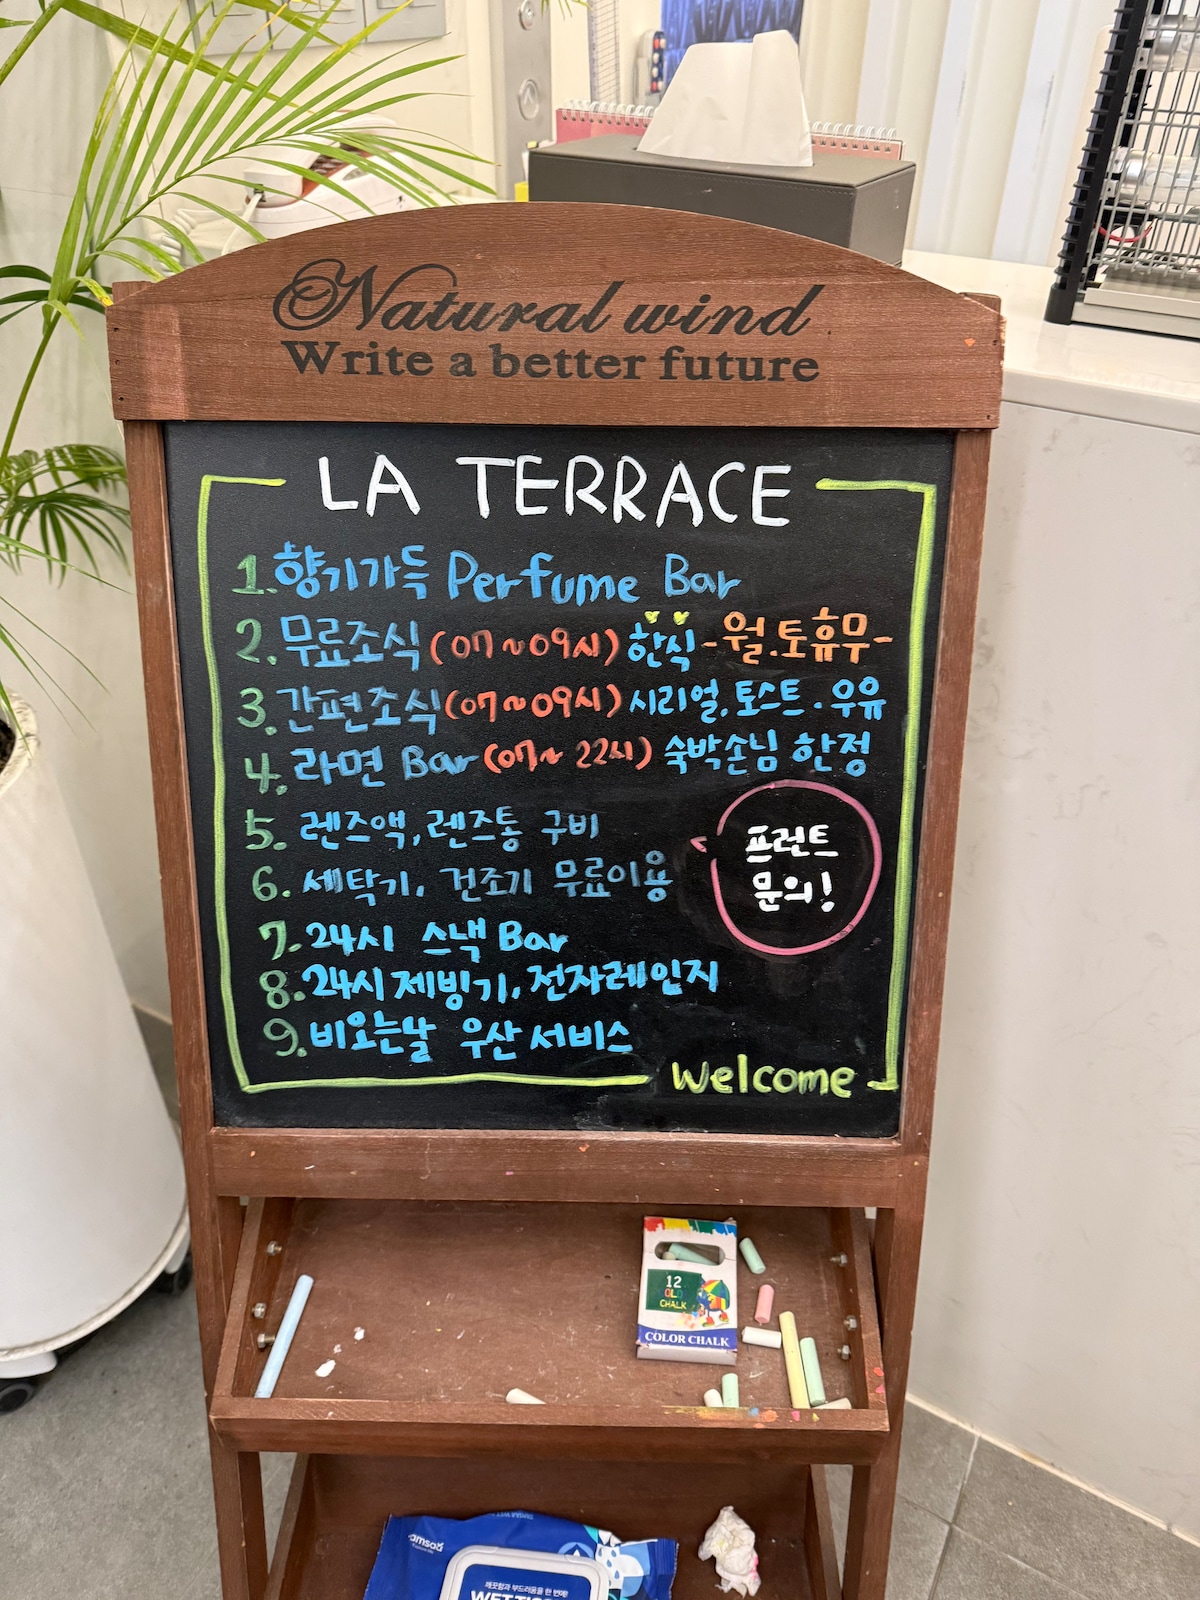 Natural wind
Write a better future
LA TERRACE
1. 향기가득 Perfume Bar
2. 무료조식 (07~09시) 한식 -월.토휴무-
3. 간편조식 (07~09시) 시리얼.토스트.우유
4. 라면 Bar (07~ 22시) 숙박손님 한정
5. 렌즈액, 렌즈통 구비
6. 세탁기, 건조기 무료이용
프런트
문의!
7. 24시 스낵 Bar
8. 24시 제빙기, 전자레인지
9. 비오는날 우산 서비스
Welcome
12
OLO
CHALK
COLOR CHALK
깨끗함과 부드러움을 한 번에!